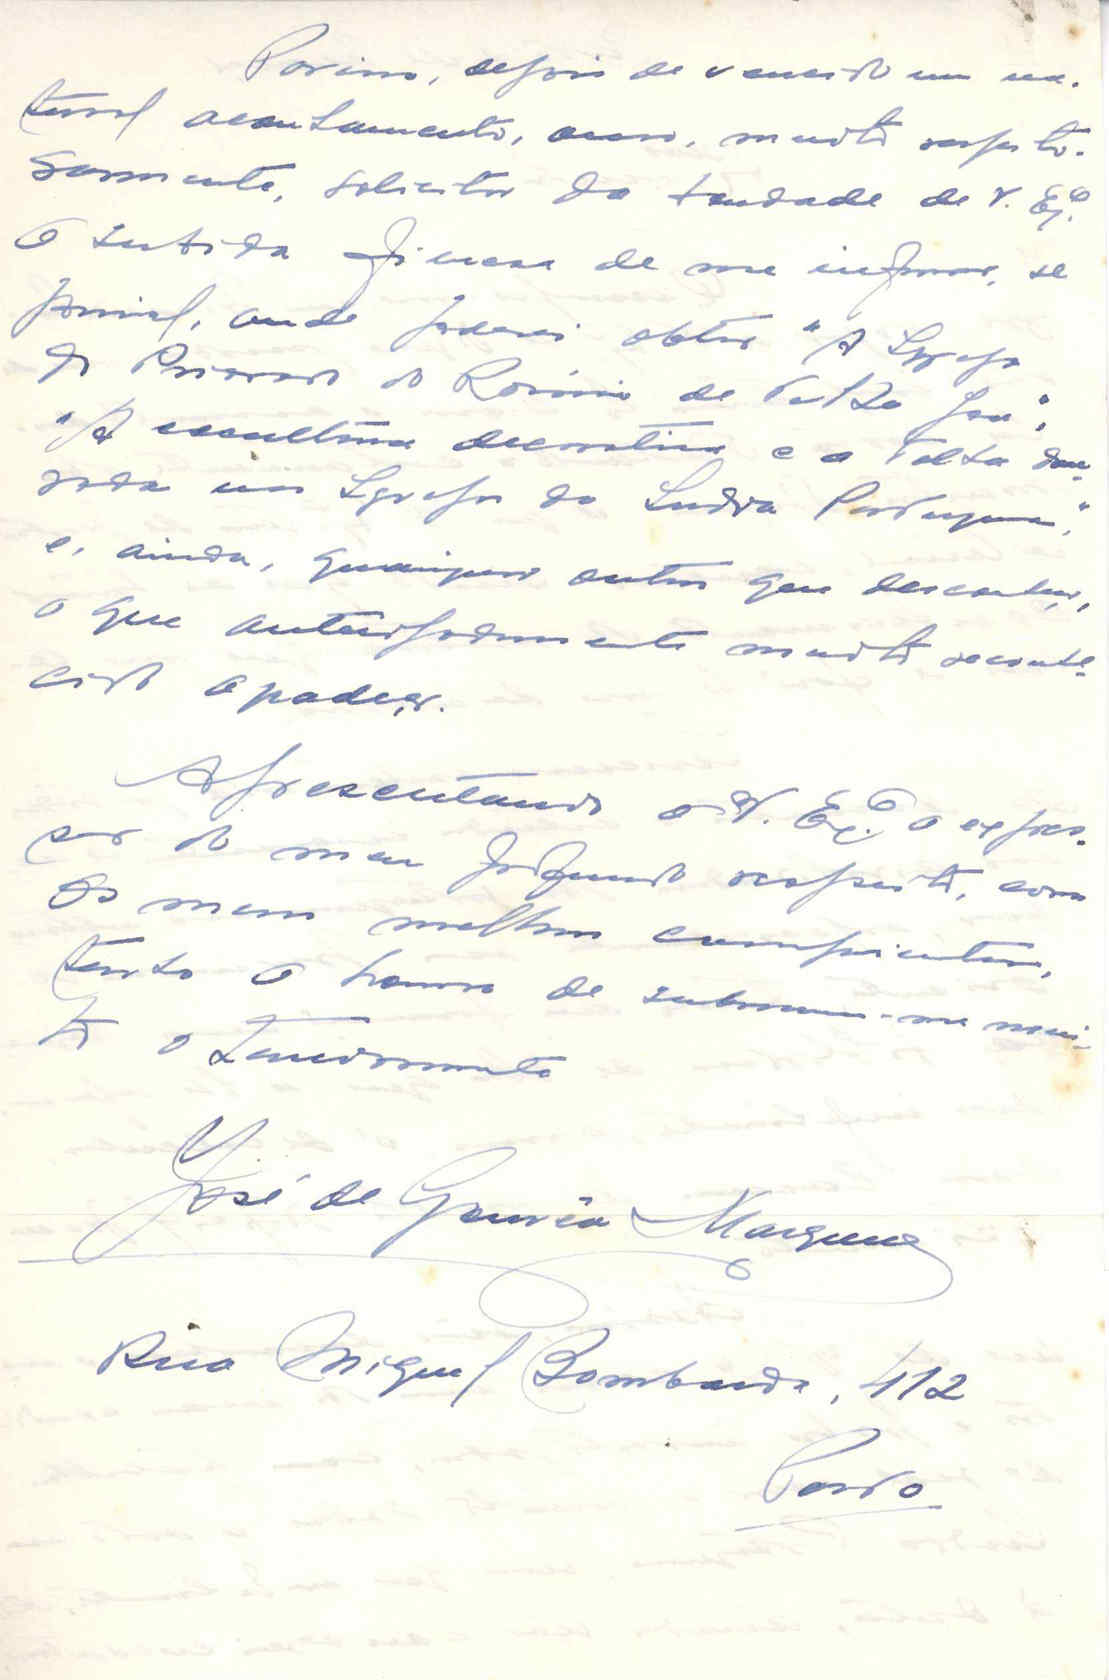 Por isso, depois de vencido um na-
tural acanhamento, ouso, muito respeito-
samente, solicitar da bondade de V. Exª.
a subida fineza de me informar, se
possivel, onde poderei obter "A Igreja
do Priorado do Rosário de Velha Goa",
"A escultura decorativa e a talha dou-
rada nas Igrejas da India Portuguesa",
e, ainda, quaisquer outros que desconheço,
o que antecipadamente muito reconhe-
cido agradeço.
Apresentando a V. Exª. a expres-
são do meu profundo respeito, com
os meus melhores cumprimentos,
tenho a honra de subscrever-me mui-
to atenciosamente
José de Gouvêa Marques
Rua Miguel Bombarda, 412
Porto